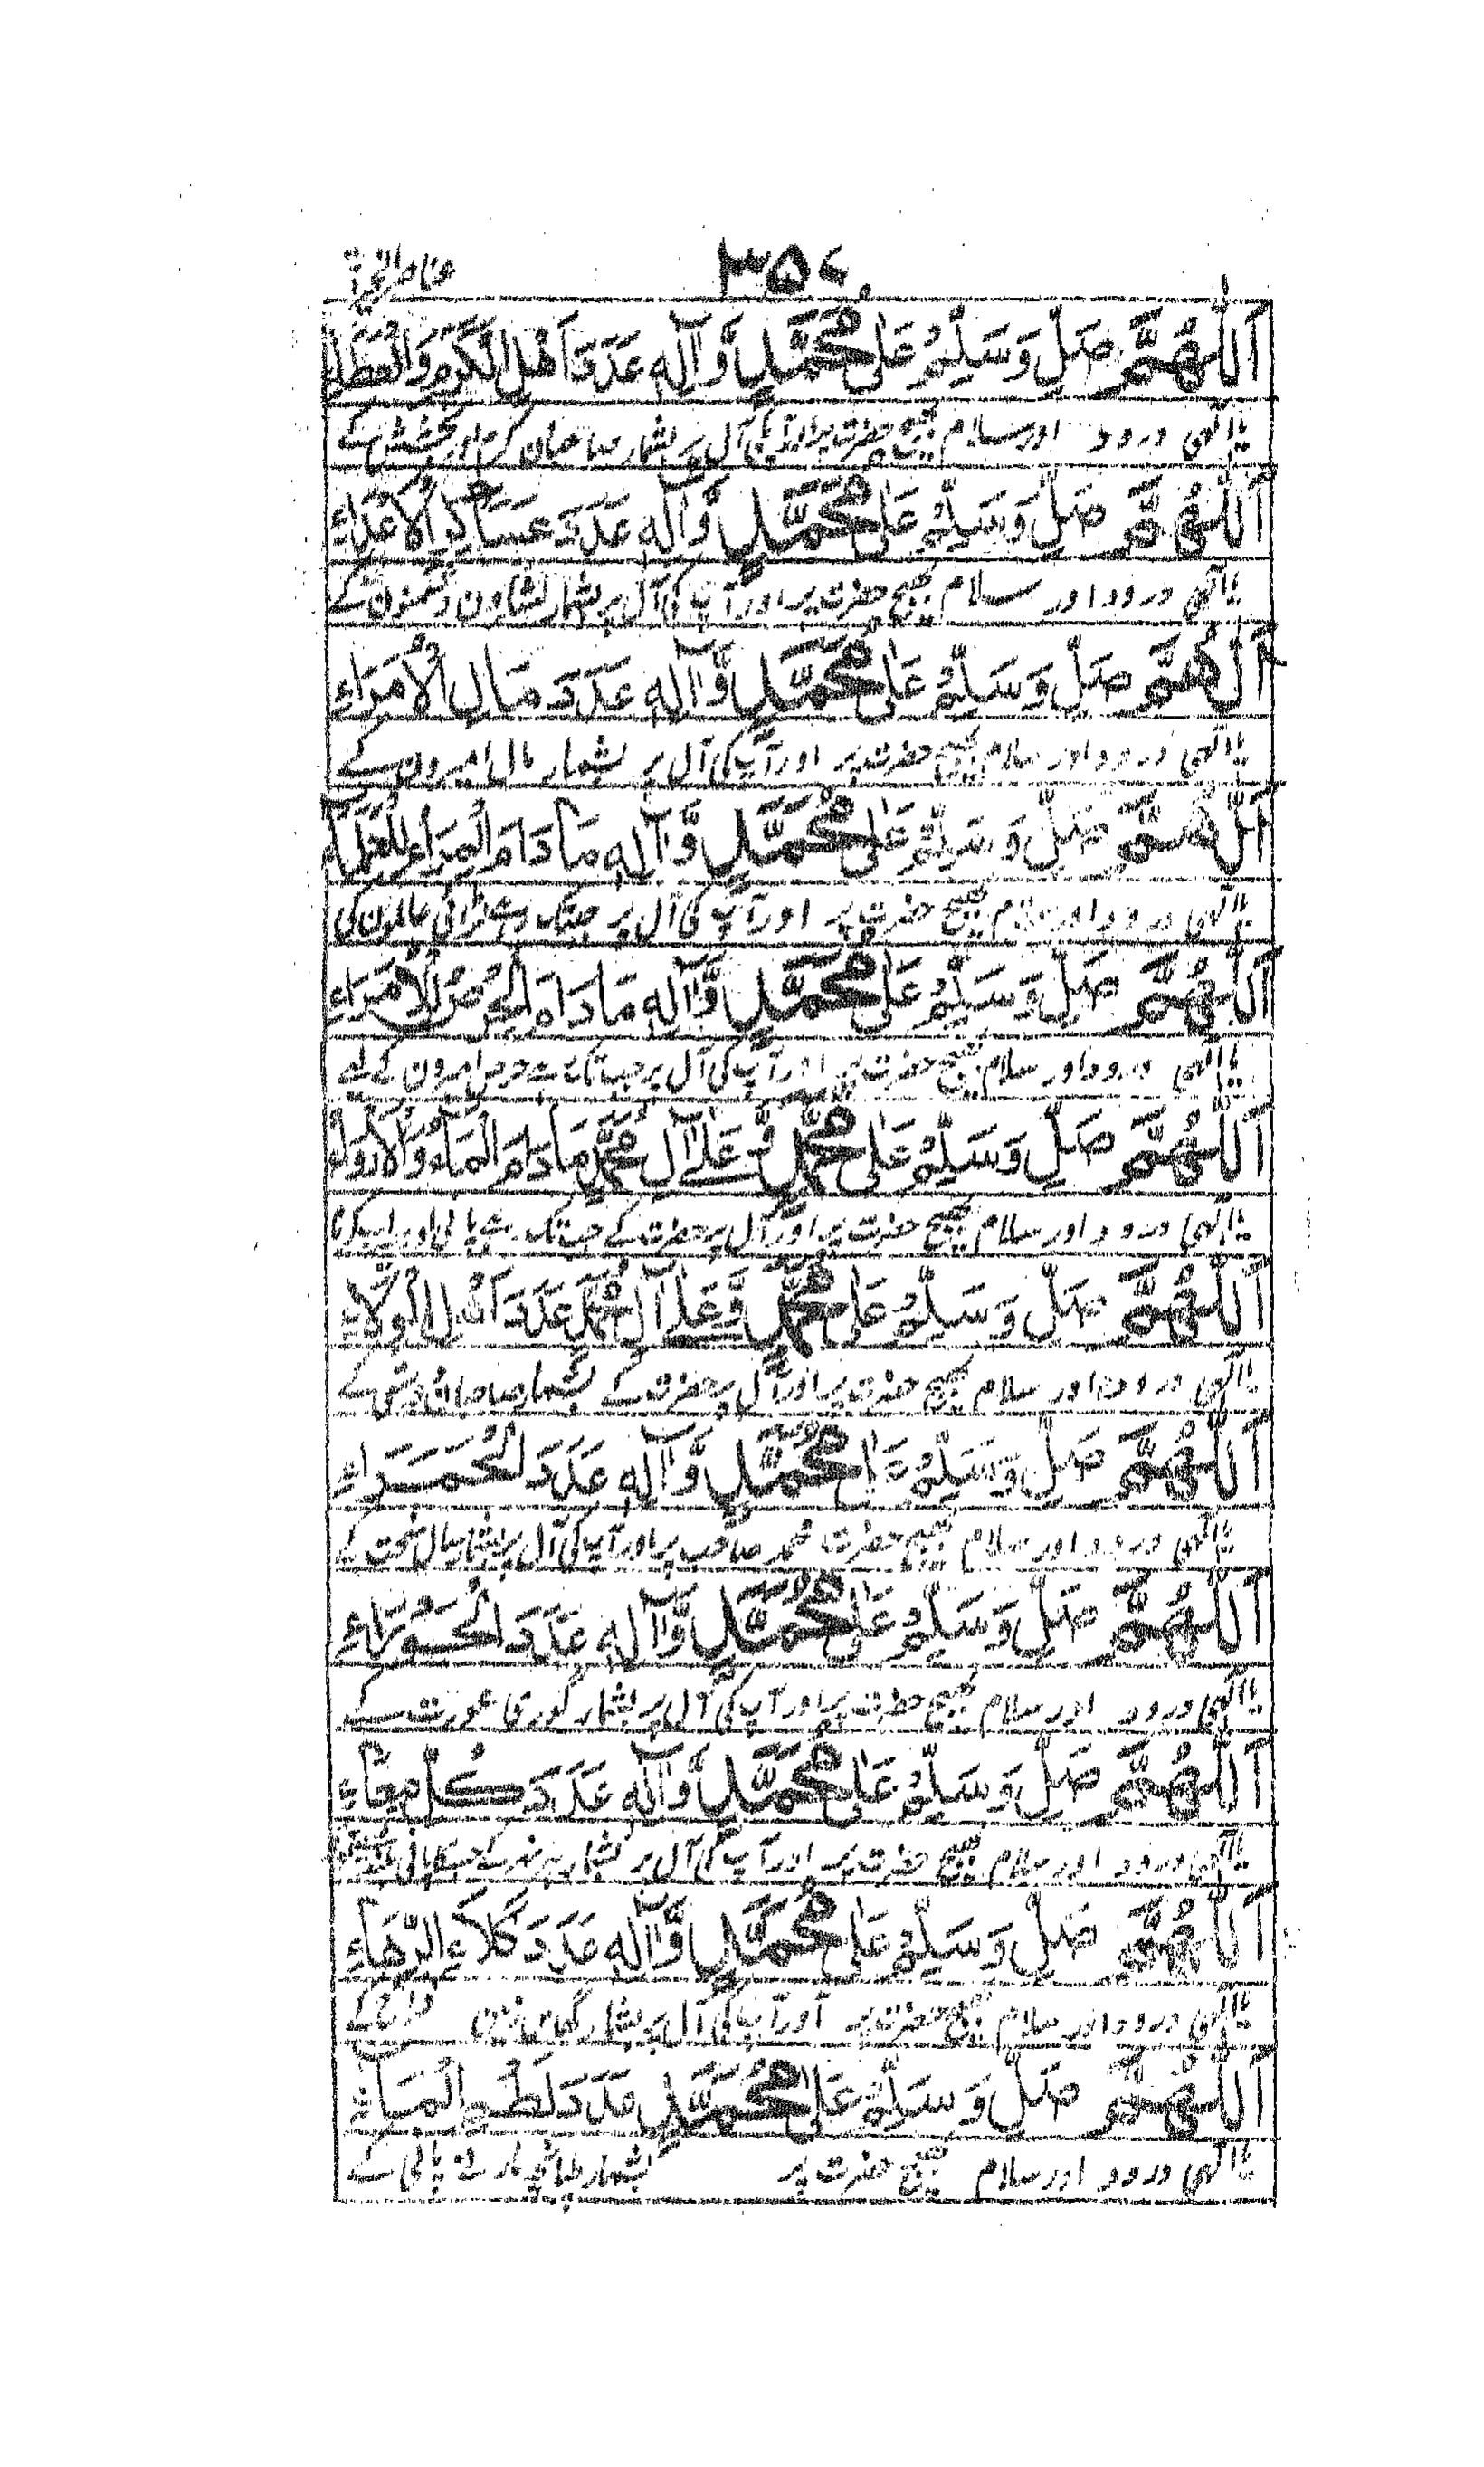 ۳۵۷ مناصر الخيرات
اَللّٰهُمَّ صَلِّ وَسَلِّمْ عَلٰى مُحَمَّدٍ وَّآلِهٖ عَدَدَ اَهْلِ الْكَرَمِ وَالْعَطَاءِ
یا الٰہی درود اور سلام بھیج حضرت پر اور آپ کی آل پر بشمار صاحبان کرم اور بخشش کے
اَللّٰهُمَّ صَلِّ وَسَلِّمْ عَلٰى مُحَمَّدٍ وَّآلِهٖ عَدَدَ عَسَاكِرِ الْاَعْدَاءِ
یا الٰہی درود اور سلام بھیج حضرت پر اور آپ کی آل پر بشمار لشکرون دشمنون کے
اَللّٰهُمَّ صَلِّ وَسَلِّمْ عَلٰى مُحَمَّدٍ وَّآلِهٖ عَدَدَ مَالِ الْاُمَرَاءِ
یا الٰہی درود اور سلام بھیج حضرت پر اور آپ کی آل پر بشمار مال امیرون کے
اَللّٰهُمَّ صَلِّ وَسَلِّمْ عَلٰى مُحَمَّدٍ وَّآلِهٖ مَا دَامَ الْمِرَاءُ لِلْعُلَمَاءِ
یا الٰہی درود اور سلام بھیج حضرت پر اور آپ کی آل پر جبتک رہے لڑائی عالمون کی
اَللّٰهُمَّ صَلِّ وَسَلِّمْ عَلٰى مُحَمَّدٍ وَّآلِهٖ مَا دَامَ الْحِرْصُ لِلْاُمَرَاءِ
یا الٰہی درود اور سلام بھیج حضرت پر اور آپ کی آل پر جبتک رہے حرص امیرون کے لئے
اَللّٰهُمَّ صَلِّ وَسَلِّمْ عَلٰى مُحَمَّدٍ وَّعَلٰى آلِ مُحَمَّدٍ مَا دَامَ الْمَاءُ وَالْاِرْوَاءُ
یا الٰہی درود اور سلام بھیج حضرت پر اور آل پر حضرت کے جب تک رہے پانی اور سیراب کرنا
اَللّٰهُمَّ صَلِّ وَسَلِّمْ عَلٰى مُحَمَّدٍ وَّعَلٰى آلِ مُحَمَّدٍ عَدَدَ اَهْلِ الْوِلَاءِ
یا الٰہی درود اور سلام بھیج حضرت پر اور آل پر حضرت کے بشمار صاحبان دوستی کے
اَللّٰهُمَّ صَلِّ وَسَلِّمْ عَلٰى مُحَمَّدٍ وَّآلِهٖ عَدَدَ الْحَمْرَاءِ
یا الٰہی درود اور سلام بھیج حضرت محمد صاحب پر اور آپ کی آل پر بشمار سال سخت کے
اَللّٰهُمَّ صَلِّ وَسَلِّمْ عَلٰى مُحَمَّدٍ وَّآلِهٖ عَدَدَ الْحَوْرَاءِ
یا الٰہی درود اور سلام بھیج حضرت پر اور آپ کی آل پر بشمار گوری عورت کے
اَللّٰهُمَّ صَلِّ وَسَلِّمْ عَلٰى مُحَمَّدٍ وَّآلِهٖ عَدَدَ كُلِّ مِعَاءٍ
یا الٰہی درود اور سلام بھیج حضرت پر اور آپ کی آل پر بشمار ہر
اَللّٰهُمَّ صَلِّ وَسَلِّمْ عَلٰى مُحَمَّدٍ وَّآلِهٖ عَدَدَ كَلَاءِ الرَّهَاءِ
یا الٰہی درود اور سلام بھیج حضرت پر اور آپ کی آل پر بشمار گھاس زمین فراخ کے
اَللّٰهُمَّ صَلِّ وَسَلِّمْ عَلٰى مُحَمَّدٍ عَدَدَ لَطْمِ الْمَاءِ
یا الٰہی درود اور سلام بھیج حضرت پر بشمار طپانچہ مارنے پانی کے